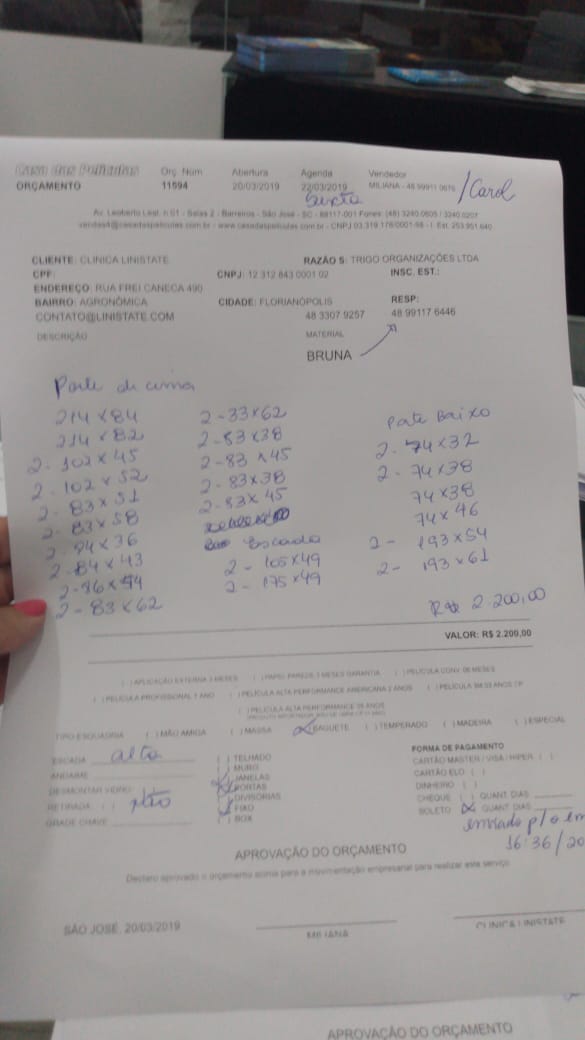 Casa das Películas
Orç Num Abertura Agenda Vendedor
ORÇAMENTO 11594 20/03/2019 22/03/2019 MILIANA - 48 99911 0676 /Carol
Sexta
Av. Leoberto Leal, n 61 - Salas 2 - Barreiros - São José - SC - 88117-001 Fones: (48) 3240.0605 / 3240.0207
vendas4@casadaspeliculas.com.br - www.casadaspeliculas.com.br - CNPJ 03.319.176/0001-98 - I. Est. 253.951.640
CLIENTE: CLINICA LINISTATE RAZÃO S: TRIGO ORGANIZAÇÕES LTDA
CPF: CNPJ: 12 312 843 0001 02 INSC. EST.:
ENDEREÇO: RUA FREI CANECA 490
BAIRRO: AGRONÔMICA CIDADE: FLORIANÓPOLIS RESP:
CONTATO@LINISTATE.COM 48 3307 9257 48 99117 6446
DESCRIÇÃO MATERIAL
BRUNA
Parte de cima
214 x 84
214 x 82
2-102 x 45
2-102 x 52
2-83 x 51
2-83 x 58
2-84 x 36
2-84 x 43
2-86 x 54
2-83 x 62
2-33x62
2-83x38
2-83 x45
2-83x38
2-83x 45
Escada
2-105x49
2-175x49
Parte Baixo
2-74x32
2-74x38
74x38
74x46
2-193x54
2-193x61
R$ 2.200,00
VALOR: R$ 2.200,00
( ) APLICAÇÃO EXTERNA 3 MESES ( ) PAPEL PAREDE 3 MESES GARANTIA ( ) PELÍCULA CONV. 06 MESES
( ) PELÍCULA PROFISSIONAL 1 ANO ( ) PELÍCULA ALTA PERFORMANCE AMERICANA 2 ANOS ( ) PELÍCULA
( ) PELÍCULA ALTA PERFORMANCE ANOS
TIPO ESQUADRIA ( ) MÃO AMIGA ( ) MASSA (X) BAGUETE ( ) TEMPERADO ( ) MADEIRA ( ) ESPECIAL
ESCADA alta
ANDAIME
DESMONTAR VIDRO
RETIRADA: ( ) não
GRADE CHAVE
( ) TELHADO
( ) MURO
JANELAS
PORTAS
DIVISÓRIAS
FIXO
( ) BOX
FORMA DE PAGAMENTO
CARTÃO MASTER / VISA / HIPER ( )
CARTÃO ELO ( )
DINHEIRO ( )
CHEQUE ( ) QUANT. DIAS
BOLETO (X) QUANT. DIAS
enviado p/ o em
16:36/20
APROVAÇÃO DO ORÇAMENTO
Declaro aprovado o orçamento acima para a movimentação empresarial para realizar este serviço.
SÃO JOSÉ, 20/03/2019
MILIANA
CLINICA LINISTATE
APROVAÇÃO DO ORÇAMENTO